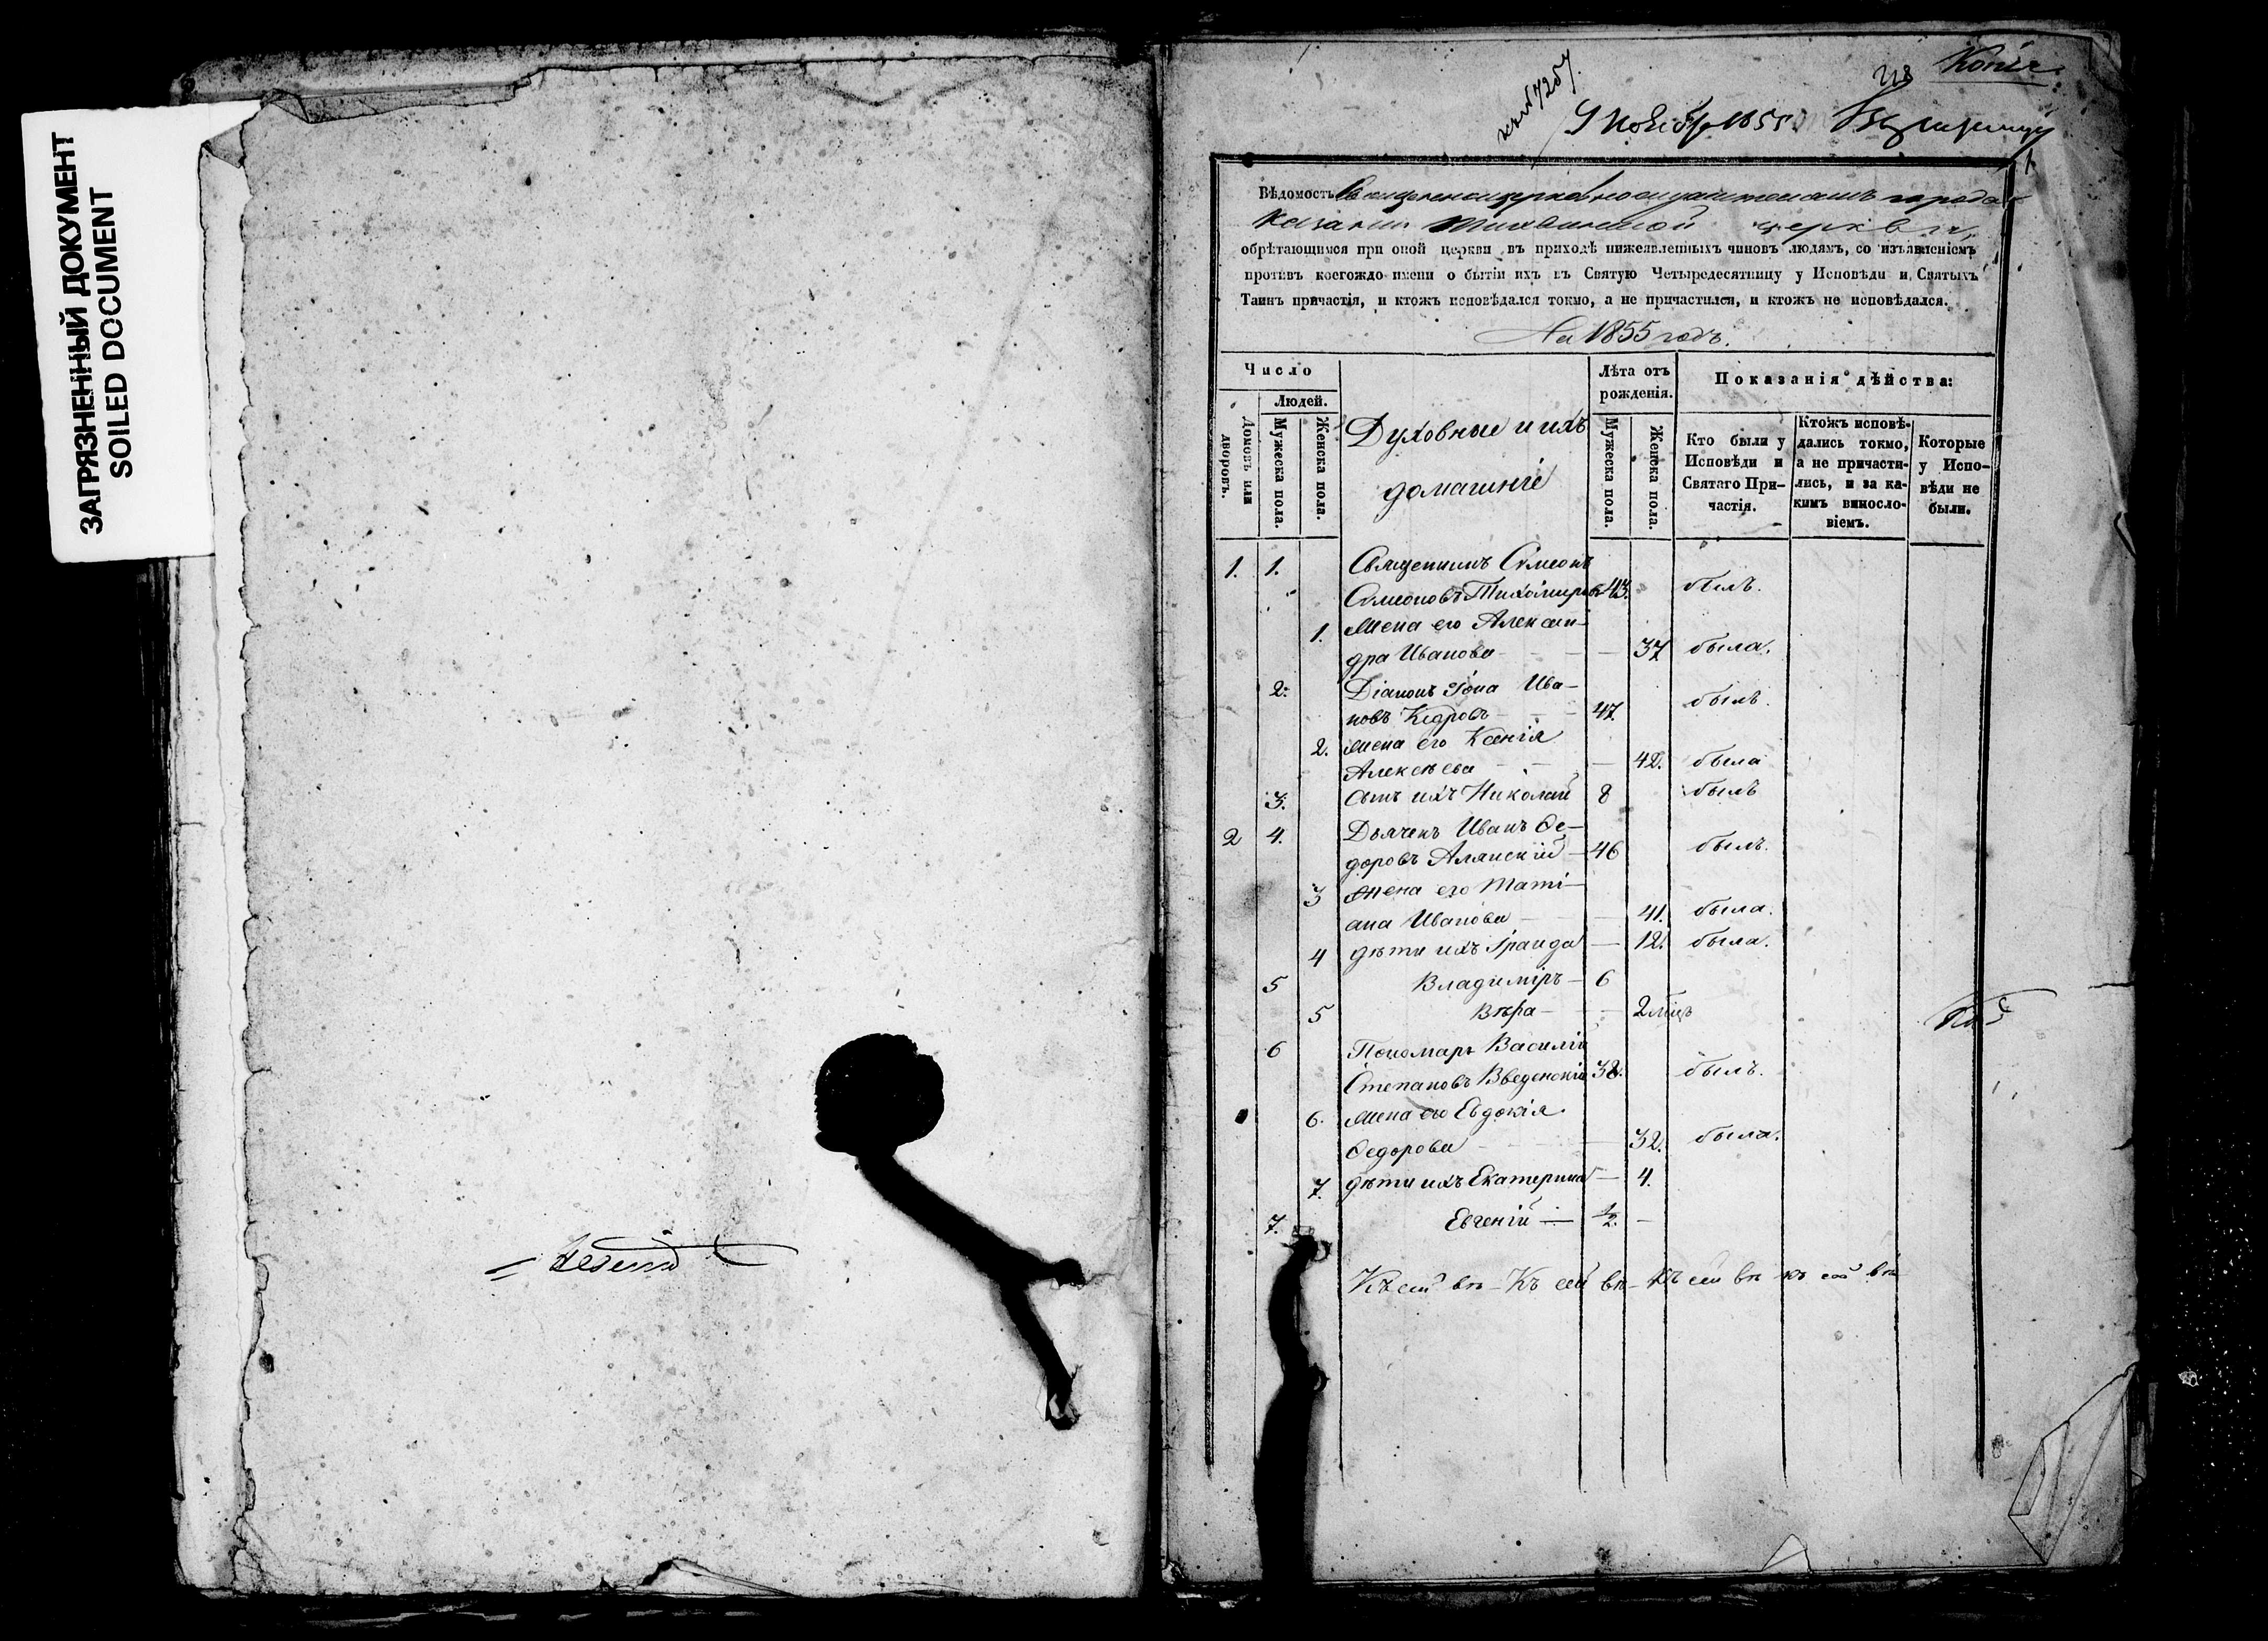 ЗАГРЯЗНЕННЫЙ ДОКУМЕНТ
SOILED DOCUMENT
Копія
9 Ноября 1855
Вѣдомость города
Казани Тихвинской церкви,
обрѣтающимся при оной церкви въ приходѣ нижеявленныхъ чиновъ людямъ, со изъявленіемъ
противъ коегождо имени о бытіи ихъ въ Святую Четыредесятницу у Исповѣди и Святыхъ
Таинъ причастія, и ктожъ исповѣдался токмо, а не причастился, и ктожъ не исповѣдался.
На 1855 годъ.
Число
Людей.
Домовъ или дворовъ.
Мужеска пола.
Женска пола.
Духовные и ихъ
домашніе
Лѣта отъ рожденія.
Мужеска пола.
Женска пола.
Показанія дѣйства:
Кто были у Исповѣди и Святаго При-частія.
Ктожъ исповѣ-дались токмо, а не причасти-лись, и за ка-кимъ виносло-віемъ.
Которые у Испо-вѣди не были.
1. 1. Священникъ Симеонъ
Симеоновъ Тихомировъ 43. былъ.
1. Жена его Алексан-
дра Иванова 37 была.
2. Діаконъ Іона Ива-
новъ Кедровъ 47. былъ.
2. Жена его Ксенія
Алексѣева 42. была
3. Сынъ ихъ Николай 8 былъ
2 4. Дьячекъ Иванъ Ѳе-
доровъ Алянскій 46 былъ.
3 Жена его Тати-
ана Иванова 41. была.
4 дѣти ихъ Ираида 12. была.
5 Владиміръ 6
5 Вѣра 2 мѣць
6 Пономарь Василій
Степановъ Введенскій 38. былъ.
6. Жена его Евдокія
Ѳедорова 32. была.
7. дѣти ихъ Екатерина 4.
7. Евгеній 1/2.
Къ сей вѣ- Къ сей вѣ- Къ сей вѣ къ сей вѣ